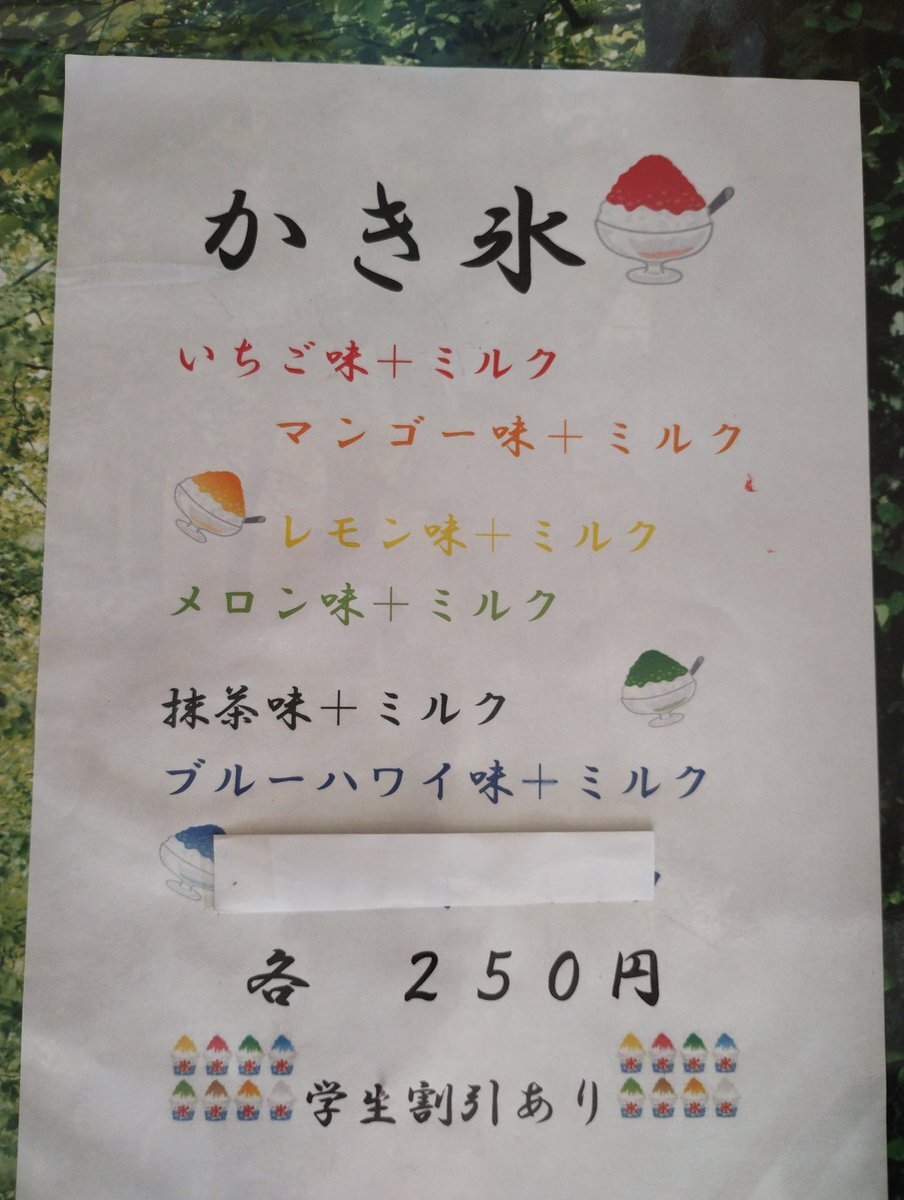 かき氷
いちご味＋ミルク
マンゴー味＋ミルク
レモン味＋ミルク
メロン味＋ミルク
抹茶味＋ミルク
ブルーハワイ味＋ミルク
各　２５０円
学生割引あり